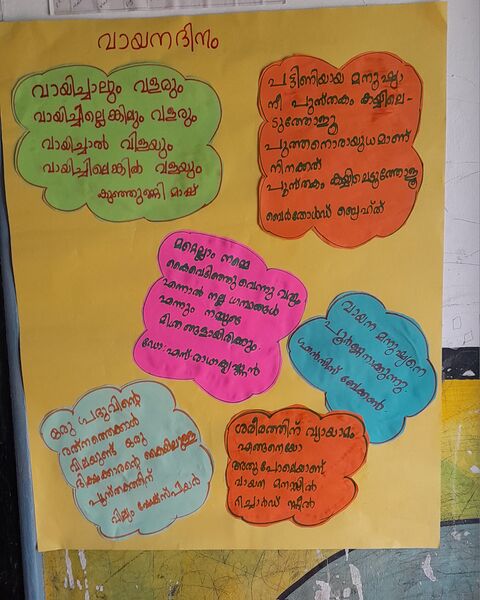 വായനദിനം
വായിച്ചാലും വളരും
വായിച്ചില്ലെങ്കിലും വളരും
വായിച്ചാൽ വിളയും
വായിച്ചിലെങ്കിൽ വളയും
കുഞ്ഞുണ്ണി മാഷ്
പട്ടിണിയായ മനുഷ്യാ
നീ പുസ്തകം കയ്യിലെ-
ടുത്തോളൂ
പുത്തനൊരായുധമാണ്
നിനക്കത്
പുസ്തകം കയ്യിലെടുത്തോളൂ
ബെർതോൾഡ് ബ്രെഹ്ത്
മറ്റെല്ലാം നമ്മെ
കൈവെടിഞ്ഞുവെന്നു വരും
എന്നാൽ നല്ല ഗ്രന്ഥങ്ങൾ
എന്നും നമ്മുടെ
മിത്രങ്ങളായിരിക്കും
ഡോ: എസ് രാധാകൃഷ്ണൻ
വായന മനുഷ്യനെ
പൂർണ്ണനാക്കുന്നു
ഫ്രാൻസിസ് ബേക്കൺ
ഒരു പ്രഭുവിന്റെ
രത്നത്തെക്കാൾ
വിലയുണ്ട് ഒരു
ഭിക്ഷക്കാരന്റെ കൈയിലുള്ള
പുസ്തകത്തിന്
വില്യം ഷേക്സ്പിയർ
ശരീരത്തിന് വ്യായാമം
എങ്ങനെയോ
അതുപോലെയാണ്
വായന മനസ്സിൽ
റിച്ചാർഡ് സ്റ്റീൽ